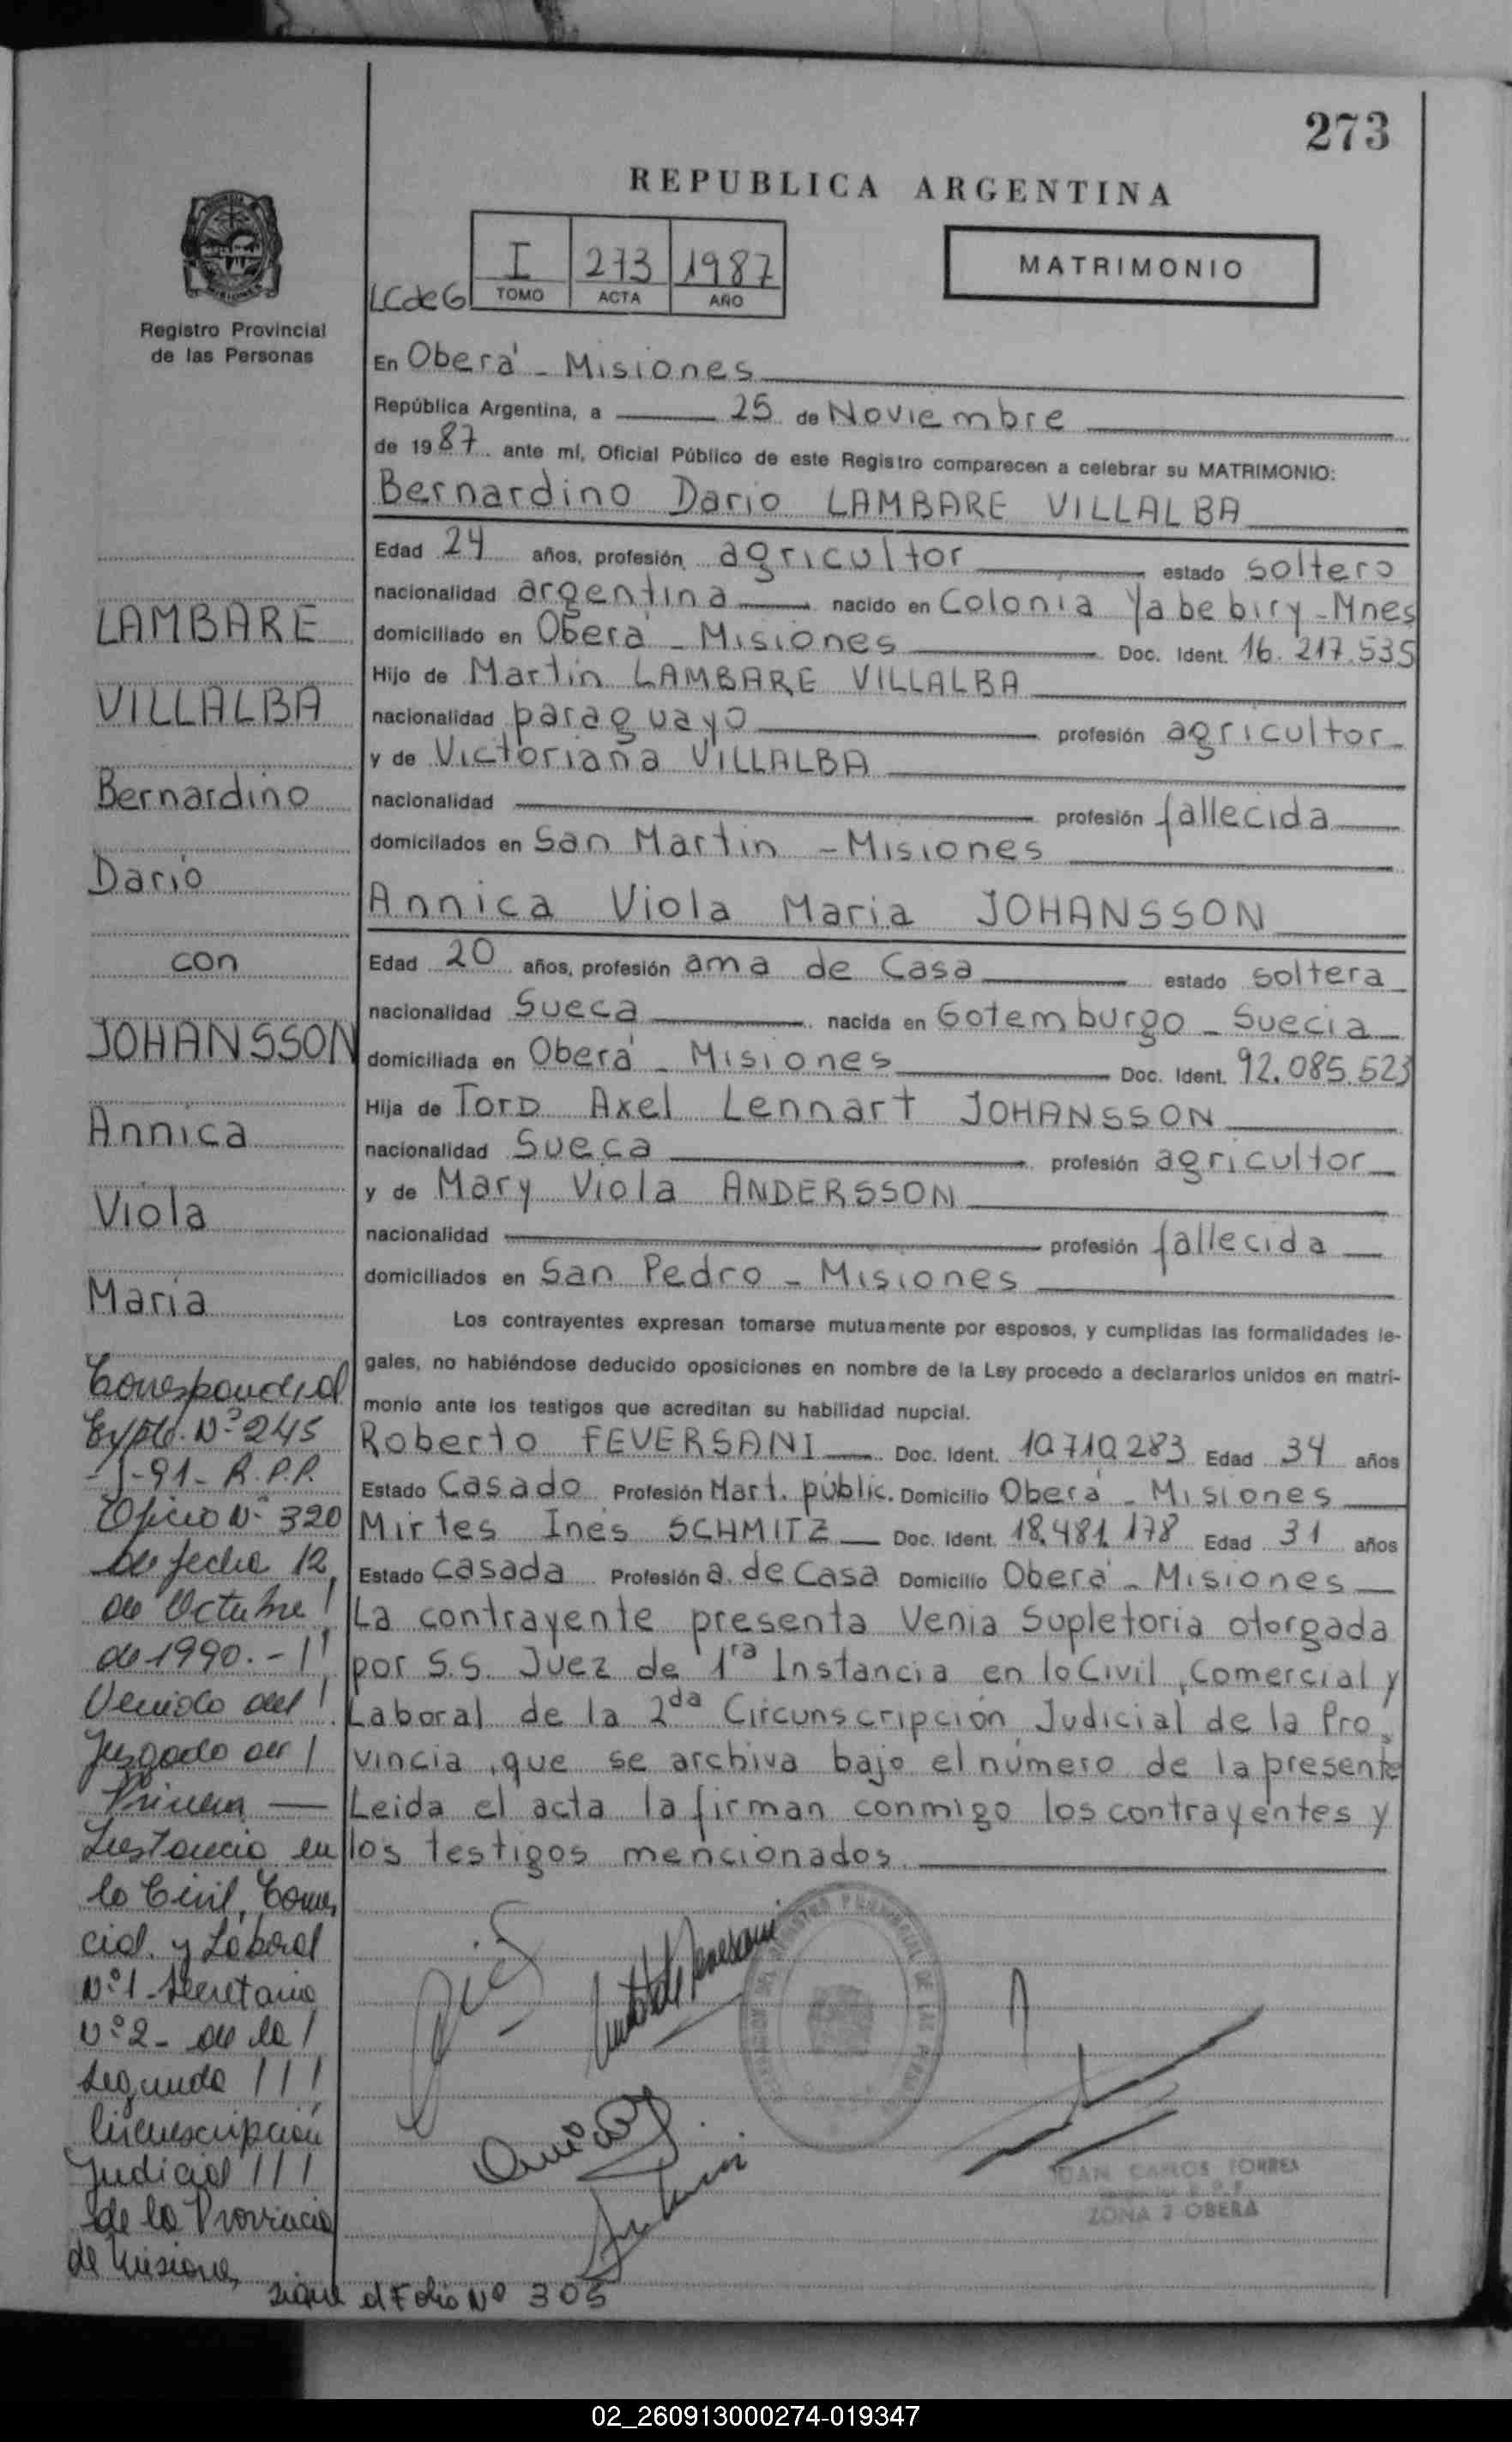 273
REPUBLICA ARGENTINA
I 273 1987
TOMO ACTA AÑO
LCdeG
MATRIMONIO
Registro Provincial
de las Personas
En Oberá - Misiones
República Argentina, a 25 de Noviembre
de 1987 ante mí, Oficial Público de este Registro comparecen a celebrar su MATRIMONIO:
Bernardino Dario LAMBARE VILLALBA
Edad 24 años, profesión agricultor estado soltero
nacionalidad argentina nacido en Colonia Yabebiry - Mnes
domiciliado en Oberá - Misiones Doc. Ident. 16.217.535
Hijo de Martin LAMBARE VILLALBA
nacionalidad paraguayo profesión agricultor
y de Victoriana VILLALBA
nacionalidad profesión fallecida
domicilados en San Martin - Misiones
Annica Viola Maria JOHANSSON
Edad 20 años, profesión ama de Casa estado soltera
nacionalidad Sueca nacida en Gotemburgo - Suecia
domiciliada en Oberá - Misiones Doc. Ident. 92.085.523
Hija de TorD Axel Lennart JOHANSSON
nacionalidad Sueca profesión agricultor
y de Mary Viola ANDERSSON
nacionalidad profesión fallecida
domiciliados en San Pedro - Misiones
Los contrayentes expresan tomarse mutuamente por esposos, y cumplidas las formalidades le-
gales, no habiéndose deducido oposiciones en nombre de la Ley procedo a declararlos unidos en matri-
monio ante los testigos que acreditan su habilidad nupcial.
Roberto FEVERSANI Doc. Ident. 10.710.283 Edad 34 años
Estado Casado Profesión Mart. públic. Domicilio Oberá - Misiones
Mirtes Inés SCHMITZ Doc. Ident. 18.481.178 Edad 31 años
Estado casada Profesión a. de Casa Domicilio Oberá - Misiones
La contrayente presenta Venia Supletoria otorgada
por S.S. Juez de 1ra Instancia en lo Civil, Comercial y
Laboral de la 2da Circunscripción Judicial de la Pro,
vincia, que se archiva bajo el número de la presente
Leida el acta la firman conmigo los contrayentes y
los testigos mencionados
LAMBARE
VILLALBA
Bernardino
Dario
con
JOHANSSON
Annica
Viola
Maria
Correspond.
Expte. Nº 245
-91- R.P.P.
Oficio Nº 320
de fecha 12
de Octubre
de 1990.-
Venido del
Juzgado de
Primera
Instancia en
lo Civil, Comer,
cial y Laboral
Nº 1 Secretaria
Nº 2 - de la
Segunda
Circunscripción
Judicial
de la Provincia
de Misiones
sigue al Folio Nº 305
JUAN CARLOS TORRES
ZONA 2 OBERA
02_260913000274-019347